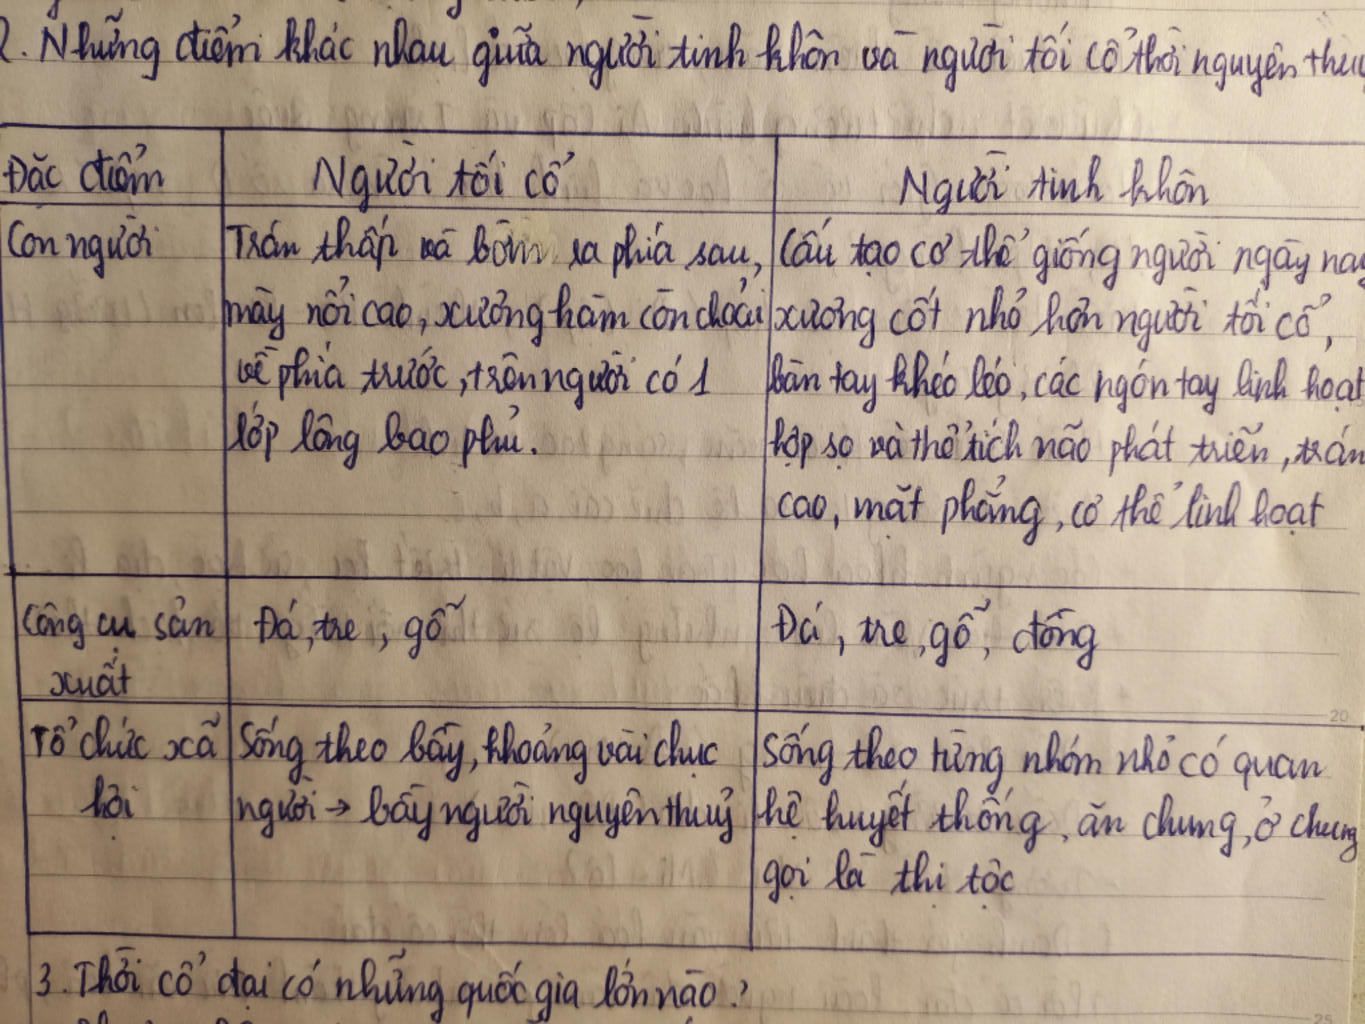 2. Những điểm khác nhau giữa người tinh khôn và người tối cổ thời nguyên thuỷ
Đặc điểm
Người tối cổ
Người tinh khôn
Con người
Trán thấp và bờm ra phía sau,
mày nổi cao, xương hàm còn choài
về phía trước, trên người có 1
lớp lông bao phủ.
Cấu tạo cơ thể giống người ngày nay
xương cốt nhỏ hơn người tối cổ,
bàn tay khéo léo, các ngón tay linh hoạt
hộp sọ và thể tích não phát triển, trán
cao, mặt phẳng, cơ thể linh hoạt
Công cụ sản
xuất
Đá, tre, gỗ
Đá, tre, gỗ, đồng
Tổ chức xã
hội
Sống theo bầy, khoảng vài chục
người → bầy người nguyên thuỷ
Sống theo từng nhóm nhỏ có quan
hệ huyết thống, ăn chung, ở chung
gọi là thị tộc
20
3. Thời cổ đại có những quốc gia lớn nào?
25